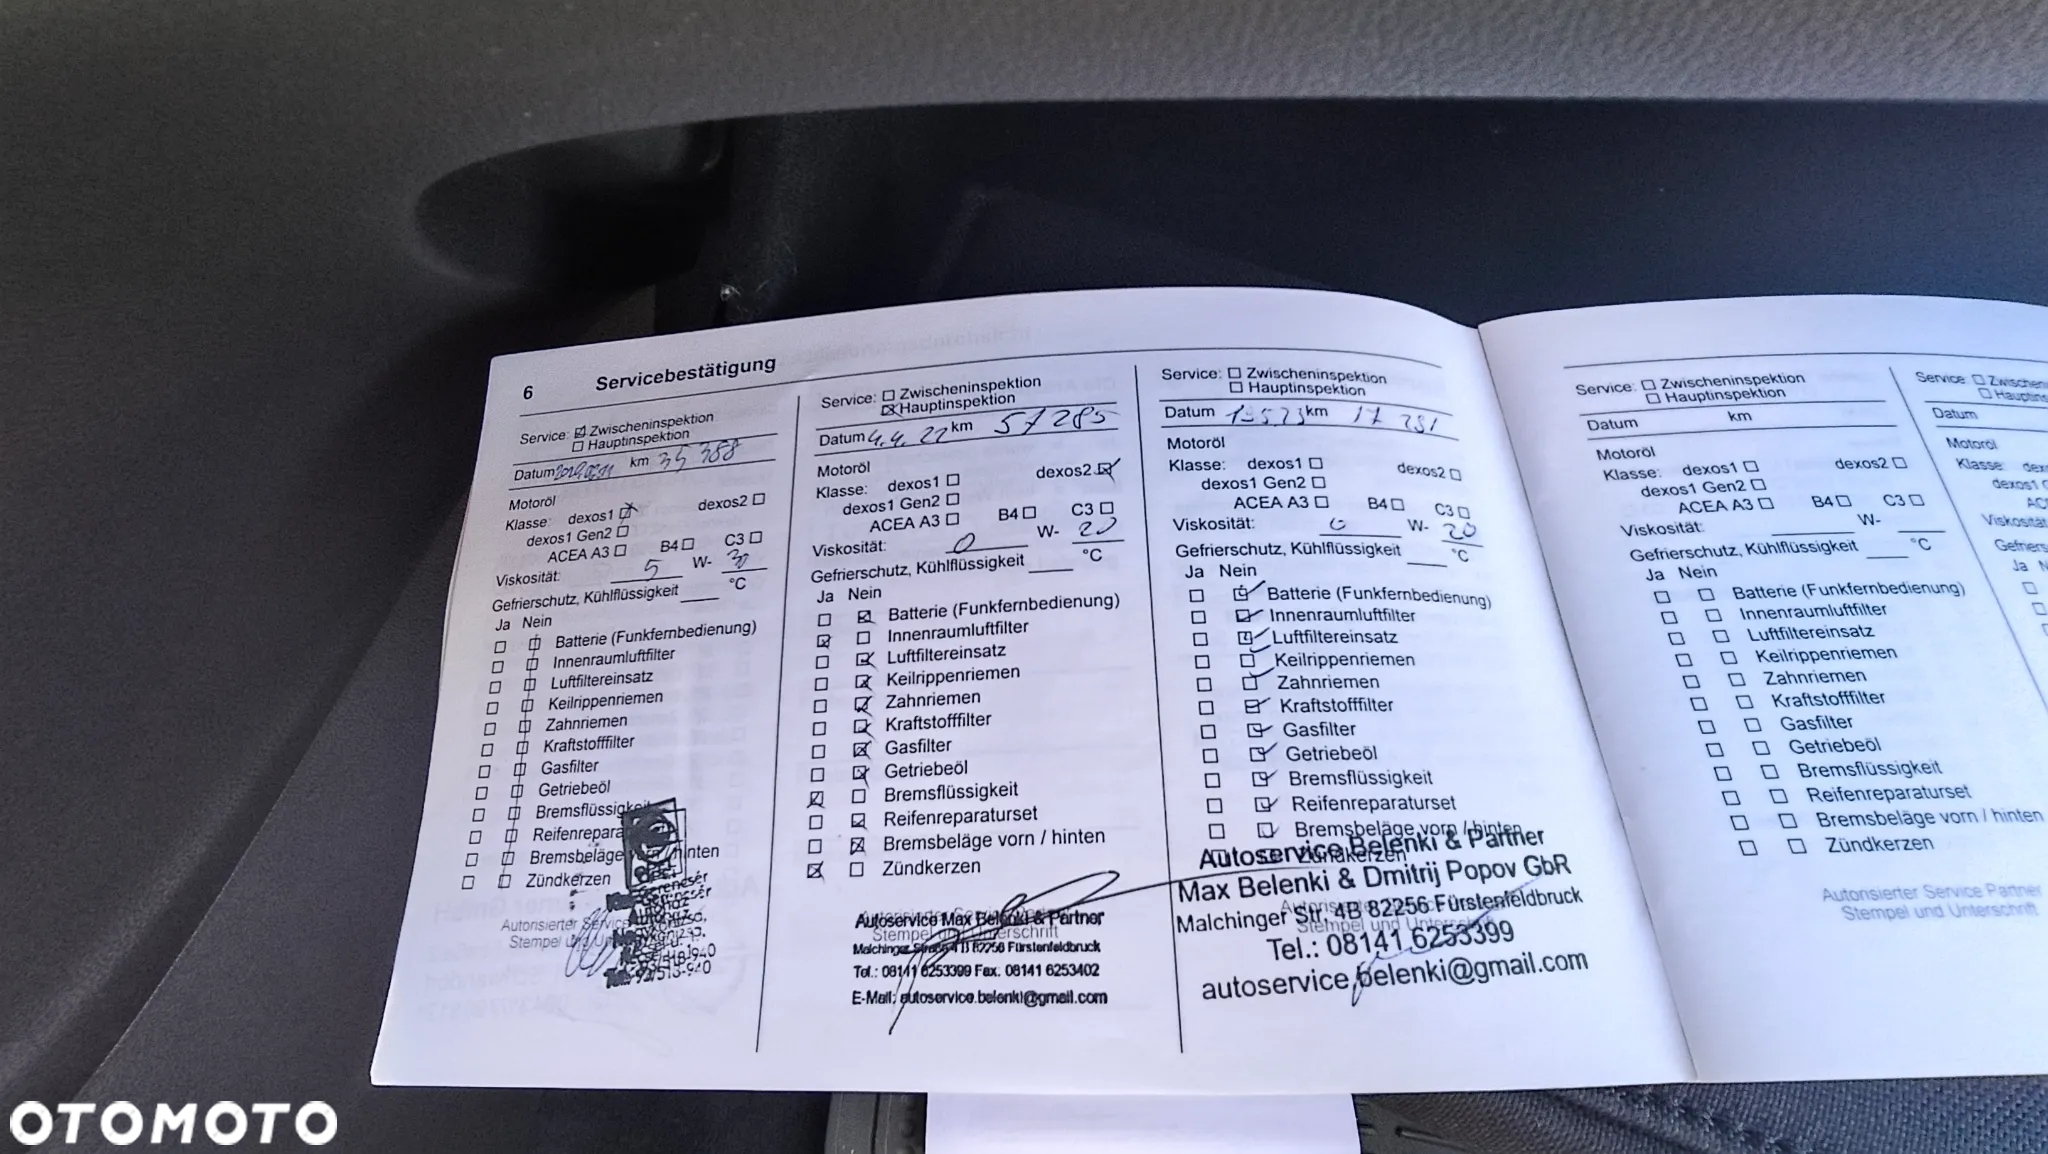 6 Servicebestätigung
Service: Zwischeninspektion
Hauptinspektion
Datum km 35 388
Motoröl
Klasse: dexos1 dexos2
dexos1 Gen2
ACEA A3 B4 C3
Viskosität: 5 W- 30
Gefrierschutz, Kühlflüssigkeit °C
Ja Nein
Batterie (Funkfernbedienung)
Innenraumluftfilter
Luftfiltereinsatz
Keilrippenriemen
Zahnriemen
Kraftstofffilter
Gasfilter
Getriebeöl
Bremsflüssigkeit
Bremsbeläge vorn / hinten
Zündkerzen
Autorisierter
Stempel und
Service: Zwischeninspektion
Hauptinspektion
Datum 4.4.22 km 57285
Motoröl
Klasse: dexos1 dexos2
dexos1 Gen2
ACEA A3 B4 C3
Viskosität: 0 W- 20
Gefrierschutz, Kühlflüssigkeit °C
Ja Nein
Batterie (Funkfernbedienung)
Innenraumluftfilter
Luftfiltereinsatz
Keilrippenriemen
Zahnriemen
Kraftstofffilter
Gasfilter
Getriebeöl
Bremsflüssigkeit
Reifenreparaturset
Bremsbeläge vorn / hinten
Zündkerzen
Autoservice Max Belenki & Partner
Malchinger Strasse 4 B 82256 Fürstenfeldbruck
Tel.: 08141 6253399 Fax. 08141 6253402
E-Mail: autoservice.belenki@gmail.com
Service: Zwischeninspektion
Hauptinspektion
Datum km
Motoröl
Klasse: dexos1 dexos2
dexos1 Gen2
ACEA A3 B4 C3
Viskosität: 0 W- 20
Gefrierschutz, Kühlflüssigkeit °C
Ja Nein
Batterie (Funkfernbedienung)
Innenraumluftfilter
Luftfiltereinsatz
Keilrippenriemen
Zahnriemen
Kraftstofffilter
Gasfilter
Getriebeöl
Bremsflüssigkeit
Reifenreparaturset
Bremsbeläge vorn / hinten
Zündkerzen
Autoservice Belenki & Partner
Max Belenki & Dmitrij Popov GbR
Malchinger Str. 4B 82256 Fürstenfeldbruck
Stempel und Unterschrift
Tel.: 08141 6253399
autoservice.belenki@gmail.com
Service: Zwischeninspektion
Hauptinspektion
Datum km
Motoröl
Klasse: dexos1 dexos2
dexos1 Gen2
ACEA A3 B4 C3
Viskosität: W-
Gefrierschutz, Kühlflüssigkeit °C
Ja Nein
Batterie (Funkfernbedienung)
Innenraumluftfilter
Luftfiltereinsatz
Keilrippenriemen
Zahnriemen
Kraftstofffilter
Gasfilter
Getriebeöl
Bremsflüssigkeit
Reifenreparaturset
Bremsbeläge vorn / hinten
Zündkerzen
Autorisierter Service Partner
Stempel und Unterschrift
Service:
Datum
Motoröl
Klasse:
Ja
OTOMOTO